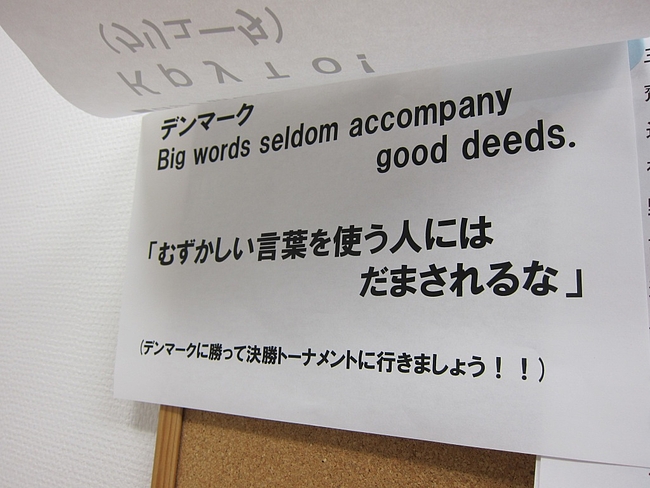 Круто!
デンマーク
Big words seldom accompany
good deeds.
「むずかしい言葉を使う人には
だまされるな」
(デンマークに勝って決勝トーナメントに行きましょう!!)